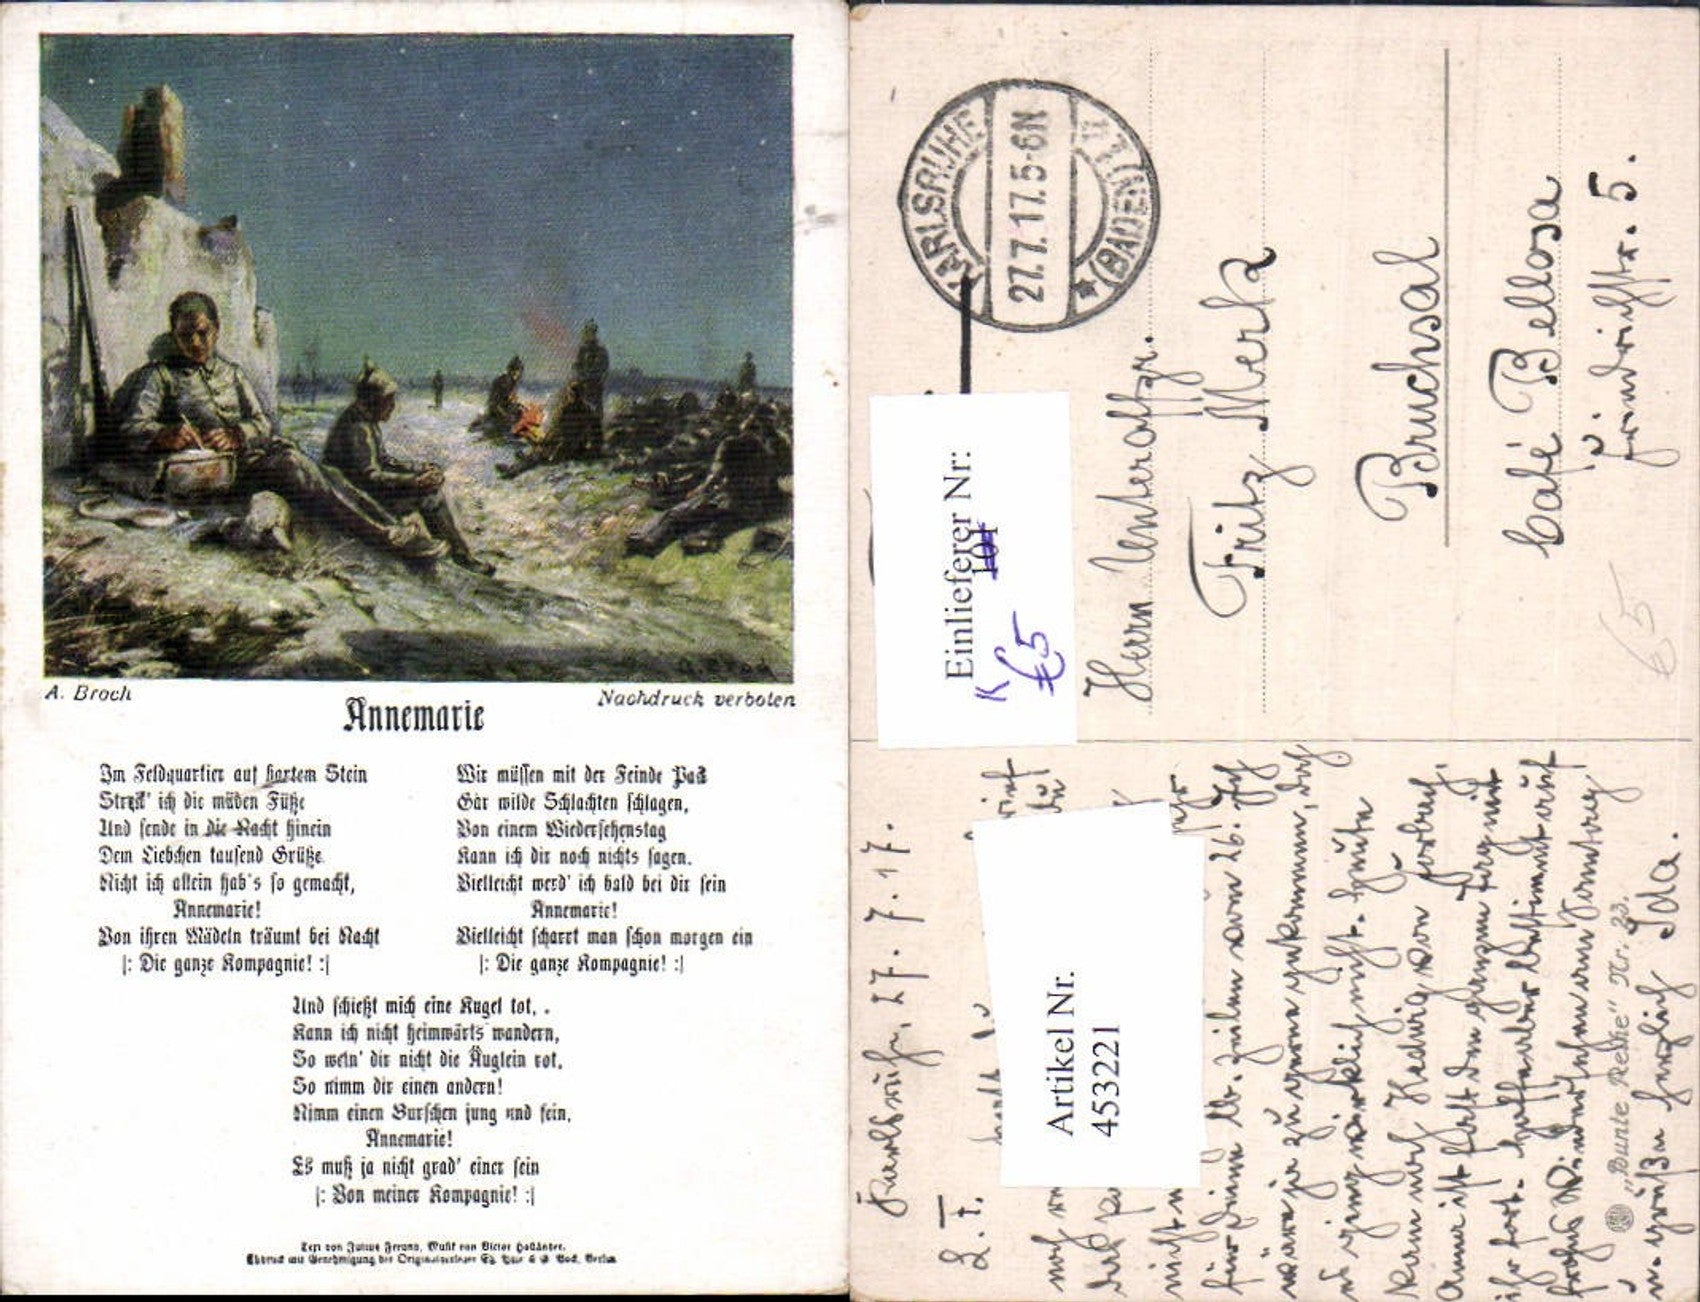 A. Broch
Nachdruck verboten
Annemarie
Im Feldquartier auf hartem Stein
Streck' ich die müden Füße
Und sende in die Nacht hinein
Dem Liebchen tausend Grüße.
Nicht ich allein hab's so gemacht,
Annemarie!
Von ihren Mädeln träumt bei Nacht
|: Die ganze Kompagnie! :|
Wir müssen mit der Feinde Pack
Gar wilde Schlachten schlagen,
Von einem Wiedersehenstag
Kann ich dir noch nichts sagen.
Vielleicht werd' ich bald bei dir sein
Annemarie!
Vielleicht scharrt man schon morgen ein
|: Die ganze Kompagnie! :|
Und schießt mich eine Kugel tot,
Kann ich nicht heimwärts wandern,
So wein' dir nicht die Äuglein rot,
So nimm dir einen andern!
Nimm einen Burschen jung und fein,
Annemarie!
Es muß ja nicht grad' einer sein
|: Von meiner Kompagnie! :|
Text von Julius Freund, Musik von Victor Holländer.
Abdruck mit Genehmigung der Originalverleger Ed. Bote & G. Bock, Berlin.
KARLSRUHE
27.7.17.5-6N
(BADEN)
Einlieferer Nr:
101
K
€5
Herrn Unteroffzr.
Fritz Merkz
Bruchsal
Café Bellosa
Friedrichstr. 5.
€5
Karlsruhe, 27. 7. 17.
L. F.
Artikel Nr.
453221
für Deine lb. Zeilen vom 26. Ich
wäre ja zu gerne gekommen, doch
es ging wirklich nicht. Heute
kam noch Hedwig von Forbach,
Anna ist fast den ganzen Tag mit
ihr fort. Hoffentlich bestimmt auf
frohes Wiedersehen am Sonntag
u. grüße herzlich Ida.
„Bunte Reihe" Nr. 23.